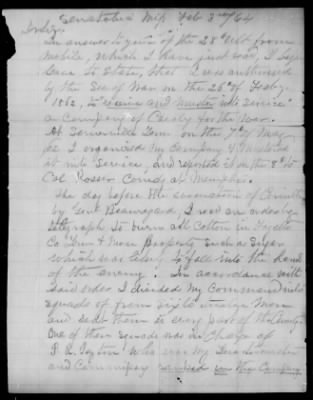 Senatobia Miss Feb 3rd /64
In answer to yours of the 28" ult from
Mobile, which I have just rec'd, I beg
leave to State, that I was authorised
by the Sec of War on the 26th of Feby.
1862, to receive and muster into service
a Company of Cavalry for the War.
At Somerville Tenn on the 7th of May
I organized my Company & Mustered
it into Service, and reported it on the 8th to
Col Rosser Comdg at Memphis.
The day before the evacuation of Corinth
by Genl Beauregard, I recd an order by
telegraph to burn all Cotton in Fayette
Co Tenn & more Property such as Sugar
which was likely to fall into the hands
of the enemy. In accordance with
Said order I divided my Command into
squads of from six to twelve Men
and sent them to every part of the County.
One of these squads was in charge of
P. R. Payton who was my
and Commissary